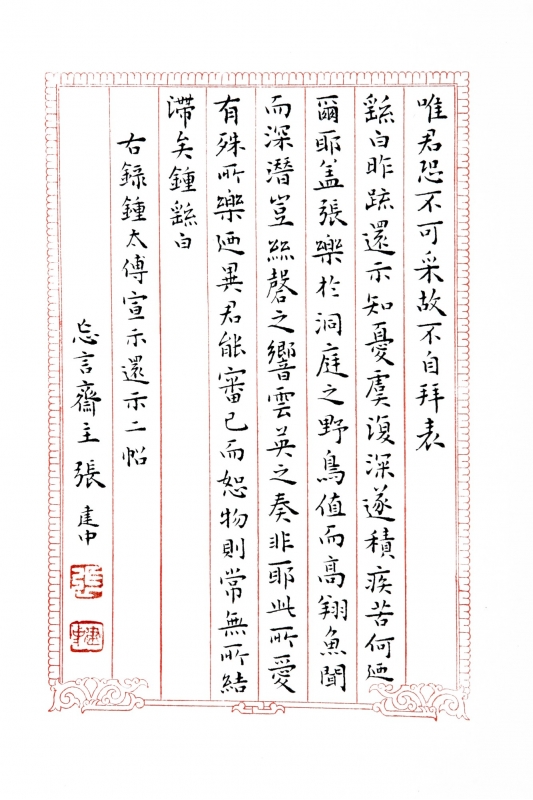 唯君恐不可采故不自拜表
繇白昨疏還示知憂虞復深遂積疾苦何迺
爾耶盖張樂於洞庭之野鳥值而高翔魚聞
而深潛豈絲磬之響雲英之奏非耶此所愛
有殊所樂迺異君能審己而恕物則常無所結
滯矣鍾繇白
右録鍾太傅宣示還示二帖
忘言齋主張建中
張
建中